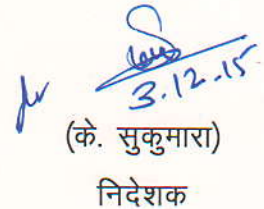 3.12.15
(के. सुकुमारा)
निदेशक